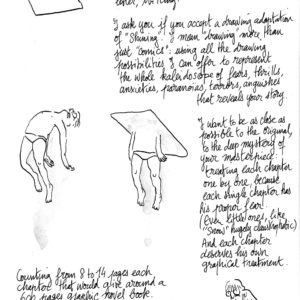 I ask you if you accept a drawing adaptation
of "Shining". I mean "drawing" more than
just "comics": using all the drawing
possibilities I can offer to represent
the whole kaleidoscope of fears, thrills,
anxieties, paranoias, terrors, anguishes
that reveals your story.
I want to be as close as
possible to the original,
to the deep mystery of
your masterpiece:
treating each chapter
one by one, because
each single chapter has
his proper fear.
(Even little ones, like
"Snow" hugely claustrophobic)
And each chapter
deserves his own
graphical treatment.
Counting from 8 to 14 pages each
chapter that would give around a
pages graphic novel book.